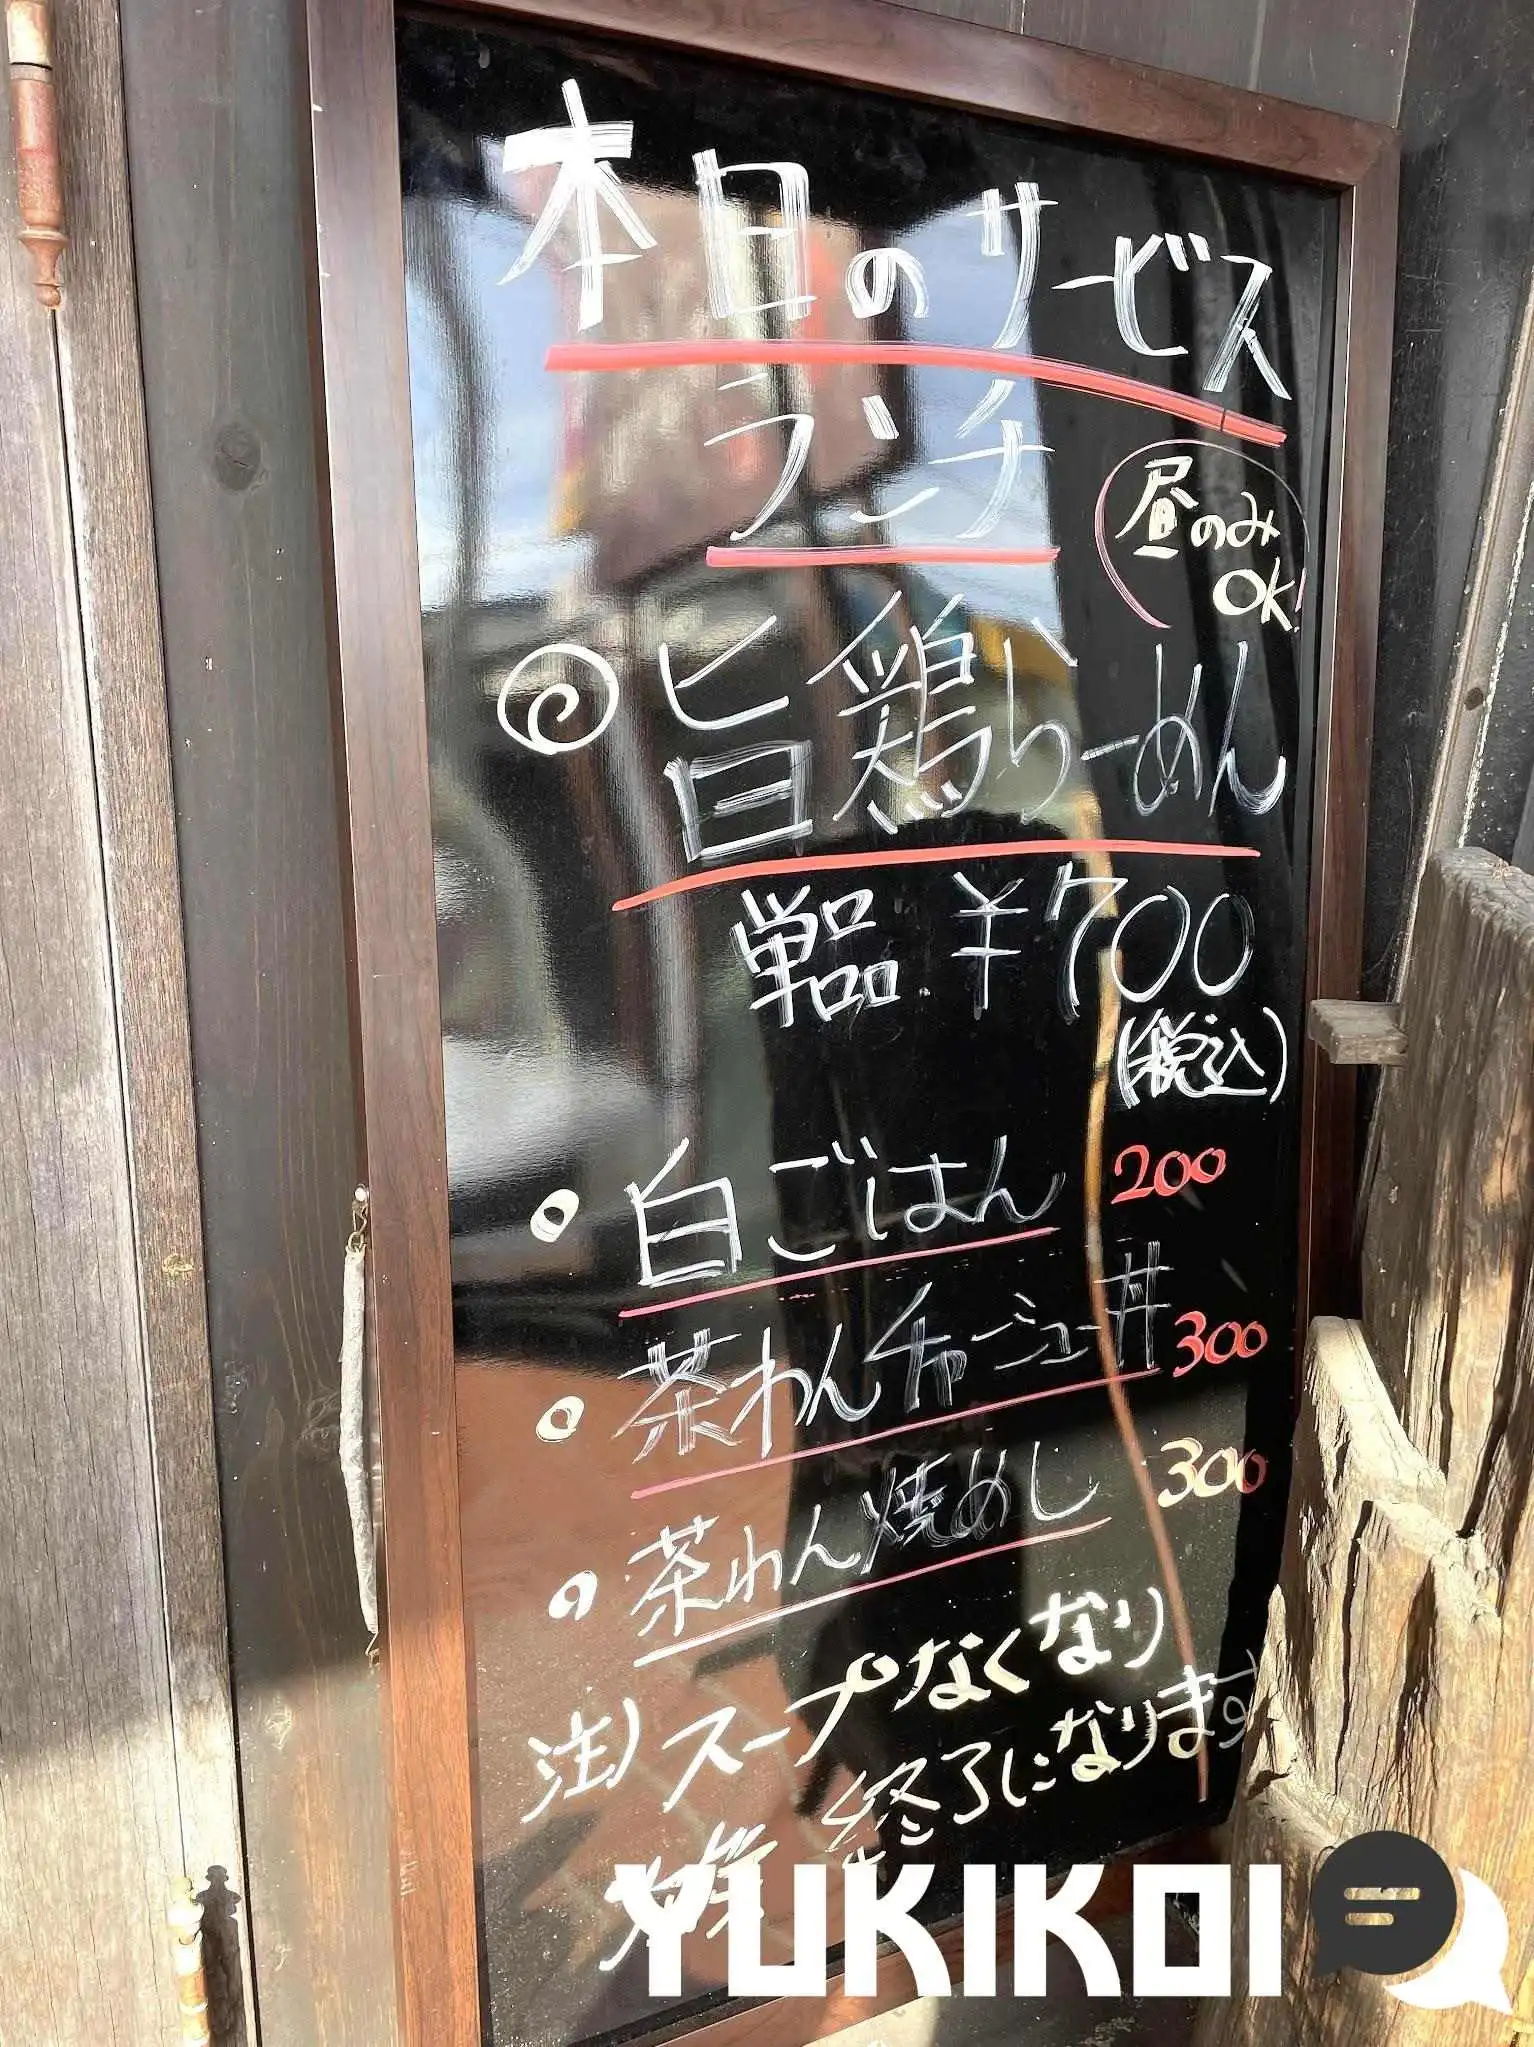 本日のサービス
ランチ
昼のみ
OK!
旨鶏らーめん
単品 ¥700
(税込)
白ごはん 200
茶わんチャーシュー丼 300
茶わん焼めし 300
注)スープなくなり
次第 終了になります
YUKIKOI